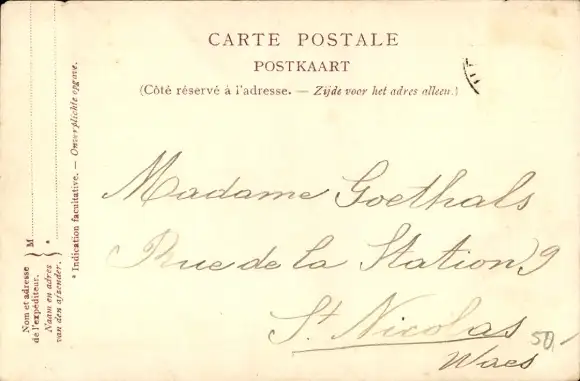 CARTE POSTALE
POSTKAART
(Côté réservé à l'adresse. — Zijde voor het adres alleen.)
Madame Goethals
Rue de la Station 9
St. Nicolas
Waes
50
Nom et adresse
de l'expéditeur.
Naam en adres
van den afzender.
M
*
* Indication facultative. — Onverplichte opgave.